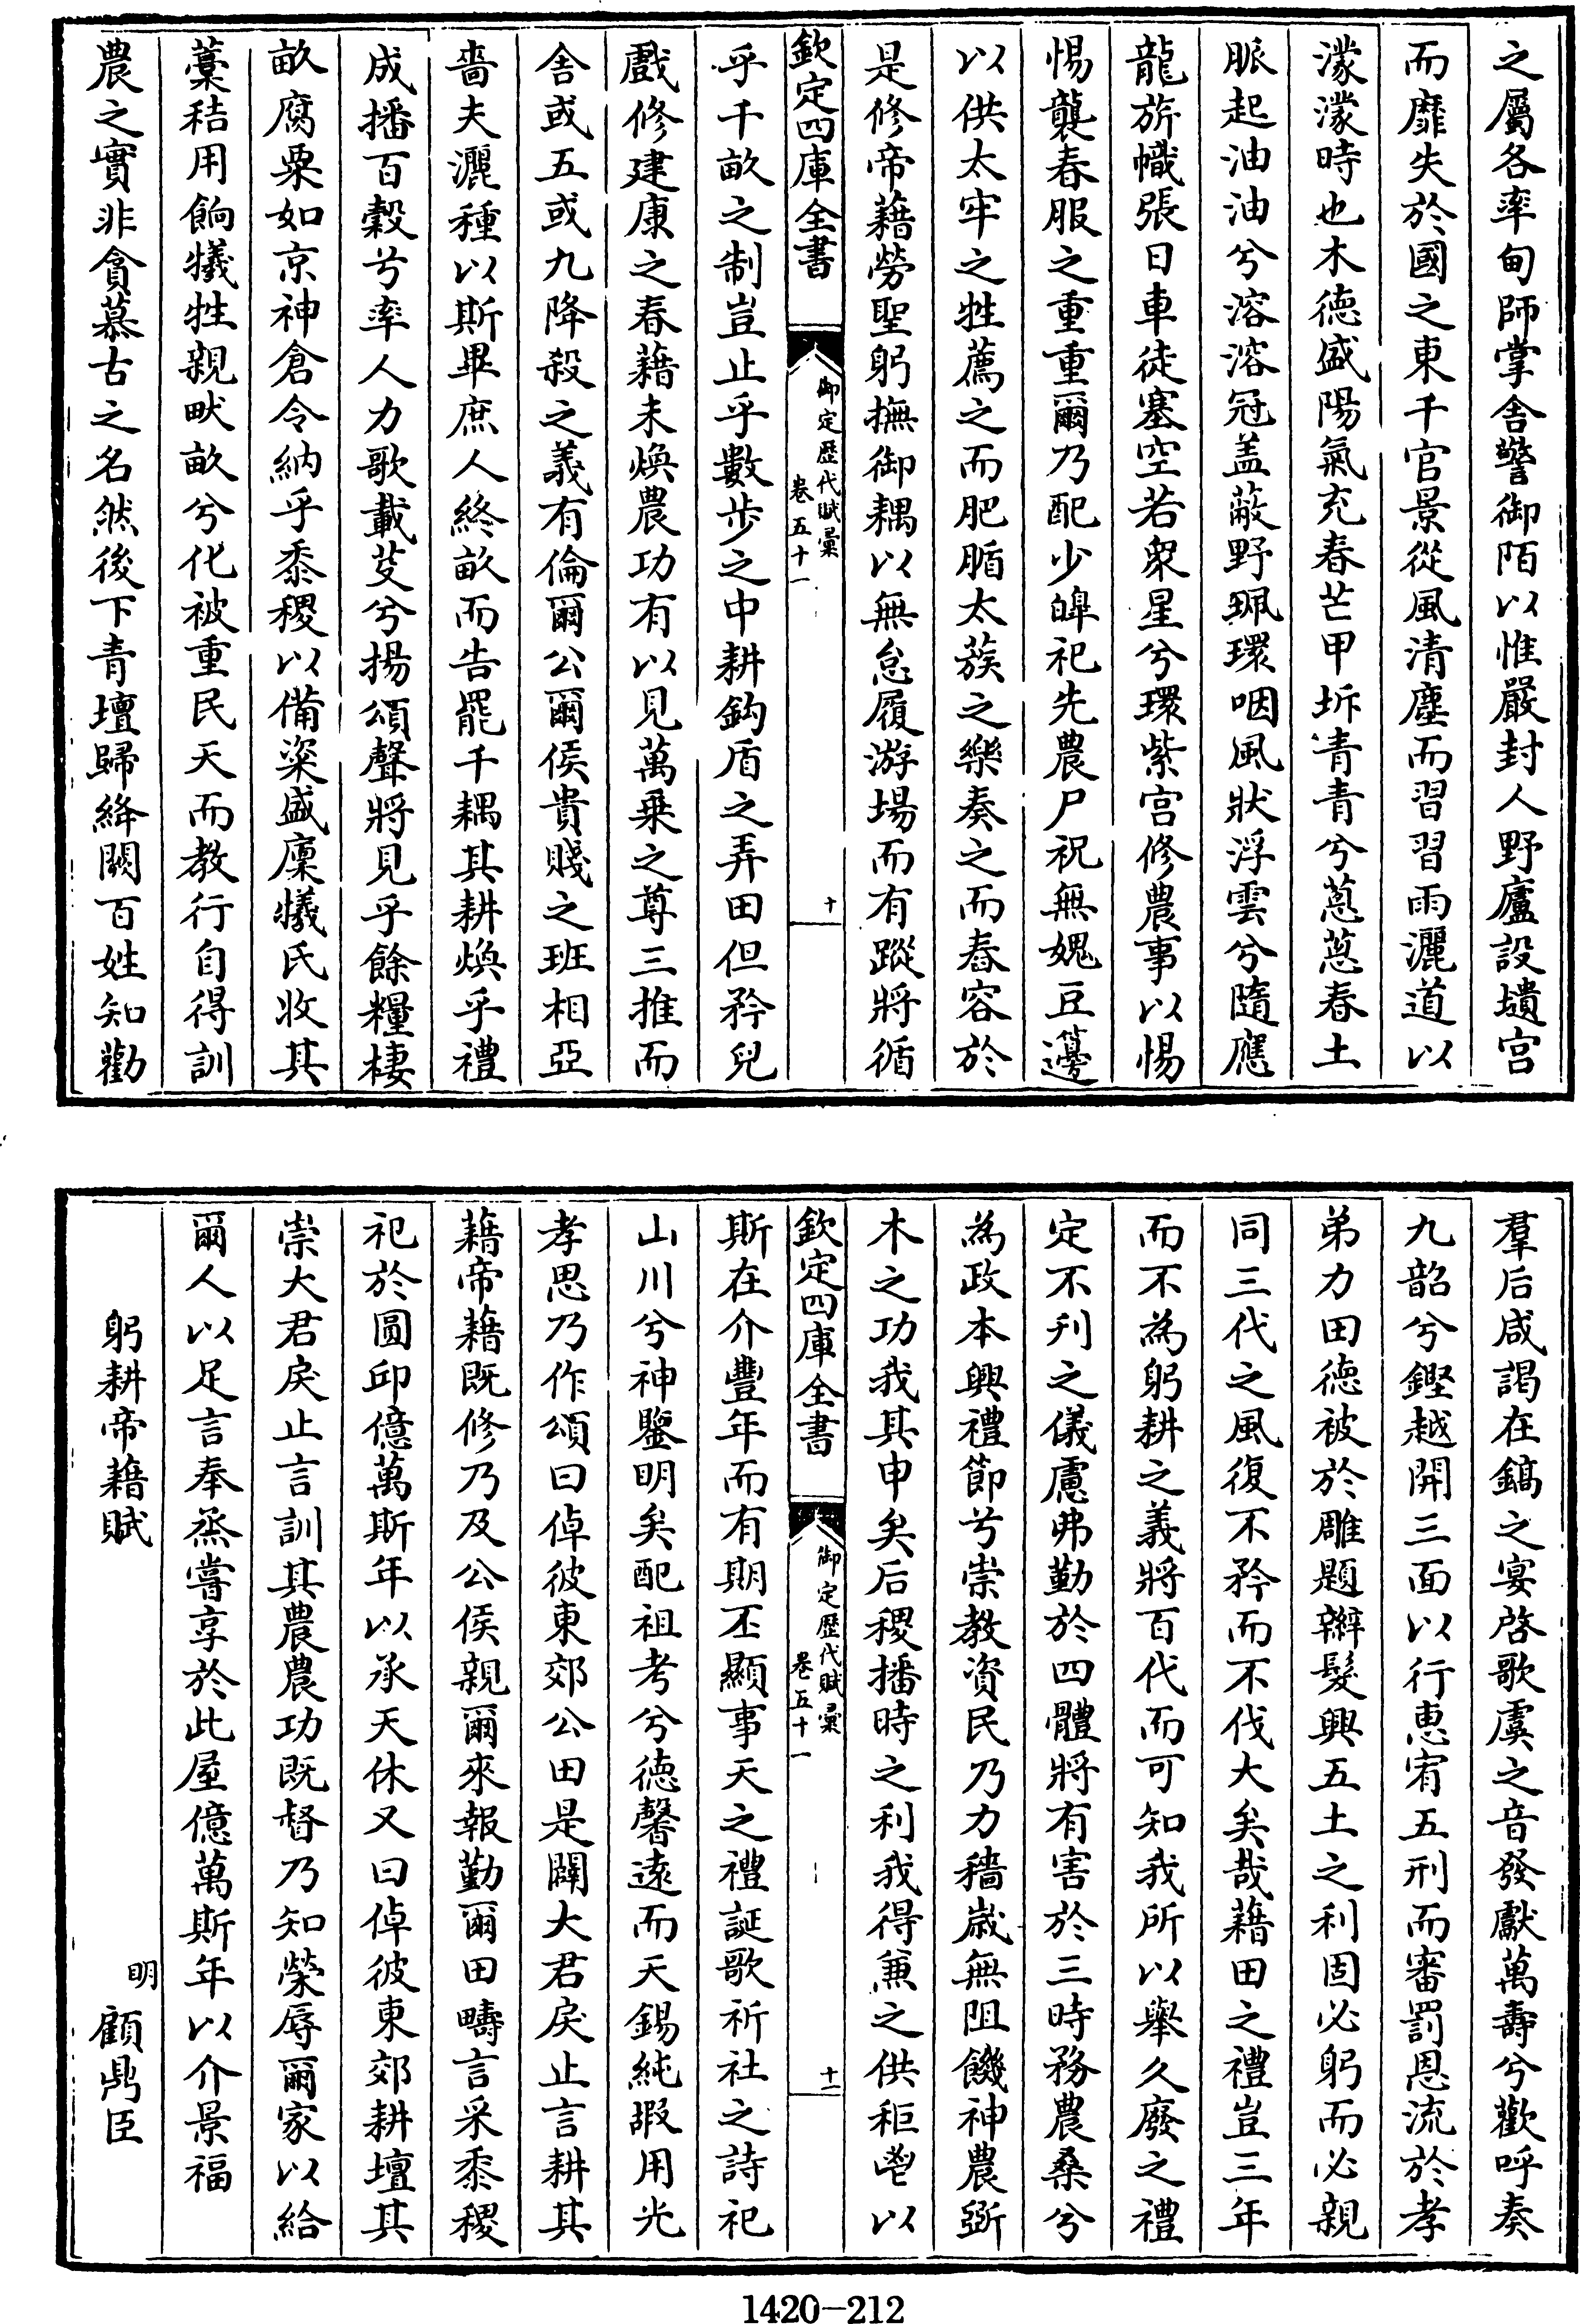 之屬各率甸師掌舍警御陌以惟嚴封人野廬設壝宫
而靡失於國之東千官景從風清塵而習習雨灑道以
濛濛時也木德盛陽氣充春芒甲坼青青兮蔥蔥春土
脈起油油兮溶溶冠盖蔽野珮環咽風狀浮雲兮隨應
龍旂幟張日車徒塞空若衆星兮環紫宫修農事以惕
惕襲春服之重重爾乃配少皥祀先農尸祝無媿豆籩
以供太牢之牲薦之而肥腯太蔟之樂奏之而舂容於
是修帝藉勞聖躬撫御耦以無怠履游場而有蹤將循
欽定四庫全書
御定歴代賦彙
卷五十一
十
乎千畝之制豈止乎數步之中耕鈎盾之弄田但矜兒
戲修建康之春藉未煥農功有以見萬乗之尊三推而
舍或五或九降殺之義有倫爾公爾侯貴賤之班相亞
嗇夫灑種以斯畢庶人終畝而告罷千耦其耕煥乎禮
成播百糓兮率人力歌載芟兮揚頌聲將見乎餘糧棲
畝腐粟如京神倉令納乎黍稷以備粢盛廩犧氏收其
藁秸用餉犧牲親畎畝兮化被重民天而教行自得訓
農之實非貪慕古之名然後下青壇歸絳闕百姓知勸
羣后咸謁在鎬之宴啓歌虞之音發獻萬壽兮歡呼奏
九韶兮鏗越開三面以行恵宥五刑而審罰恩流於孝
弟力田德被於雕題辮髮興五土之利固必躬而必親
同三代之風復不矜而不伐大矣哉藉田之禮豈三年
而不為躬耕之義將百代而可知我所以舉久廢之禮
定不刋之儀慮弗勤於四體將有害於三時務農桑兮
為政本興禮節兮崇教資民乃力穡嵗無阻饑神農斲
木之功我其申矣后稷播時之利我得兼之供秬鬯以
欽定四庫全書
御定歴代賦彙
卷五十一
十一
斯在介豐年而有期丕顯事天之禮誕歌祈社之詩祀
山川兮神鑒明矣配祖考兮德馨逺而天錫純嘏用光
孝思乃作頌曰倬彼東郊公田是闢大君戾止言耕其
藉帝藉既修乃及公侯親爾來報勤爾田疇言采黍稷
祀於圓邱億萬斯年以承天休又曰倬彼東郊耕壇其
崇大君戾止言訓其農農功既督乃知榮辱爾家以給
爾人以足言奉烝嘗享於此屋億萬斯年以介景福
躬耕帝藉賦
明
顧鼎臣
1420-212